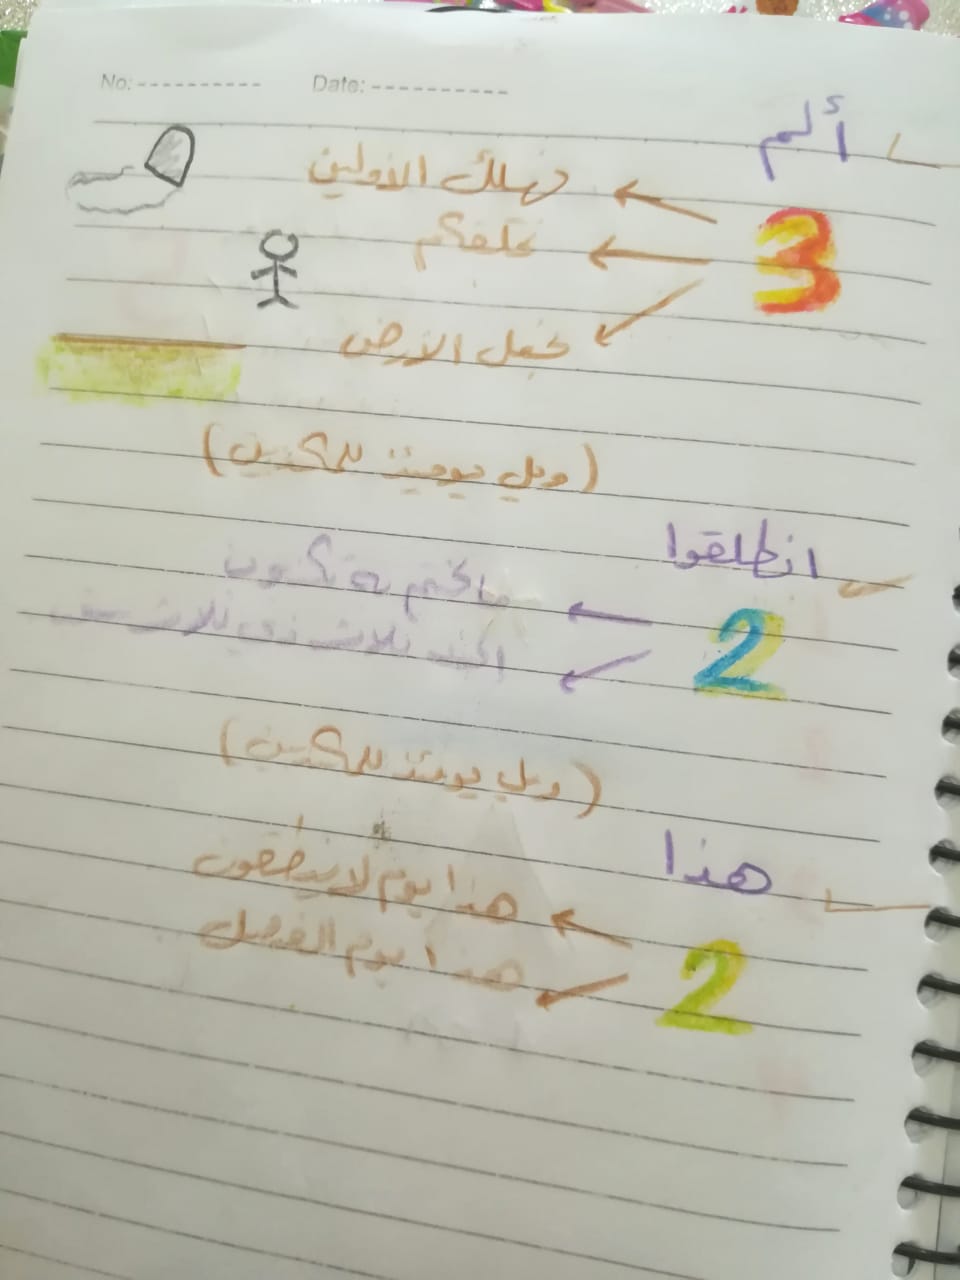 No: Date:
ألم
3
نهلك الأولين
نخلقكم
نجعل الأرض
(ويل يومئذ للمكذبين)
انطلقوا
2
ماكنتم به تكذبون
ثلاث شعب
(ويل يومئذ للمكذبين)
هذا
2
هذا يوم لا ينطقون
هذا يوم الفصل